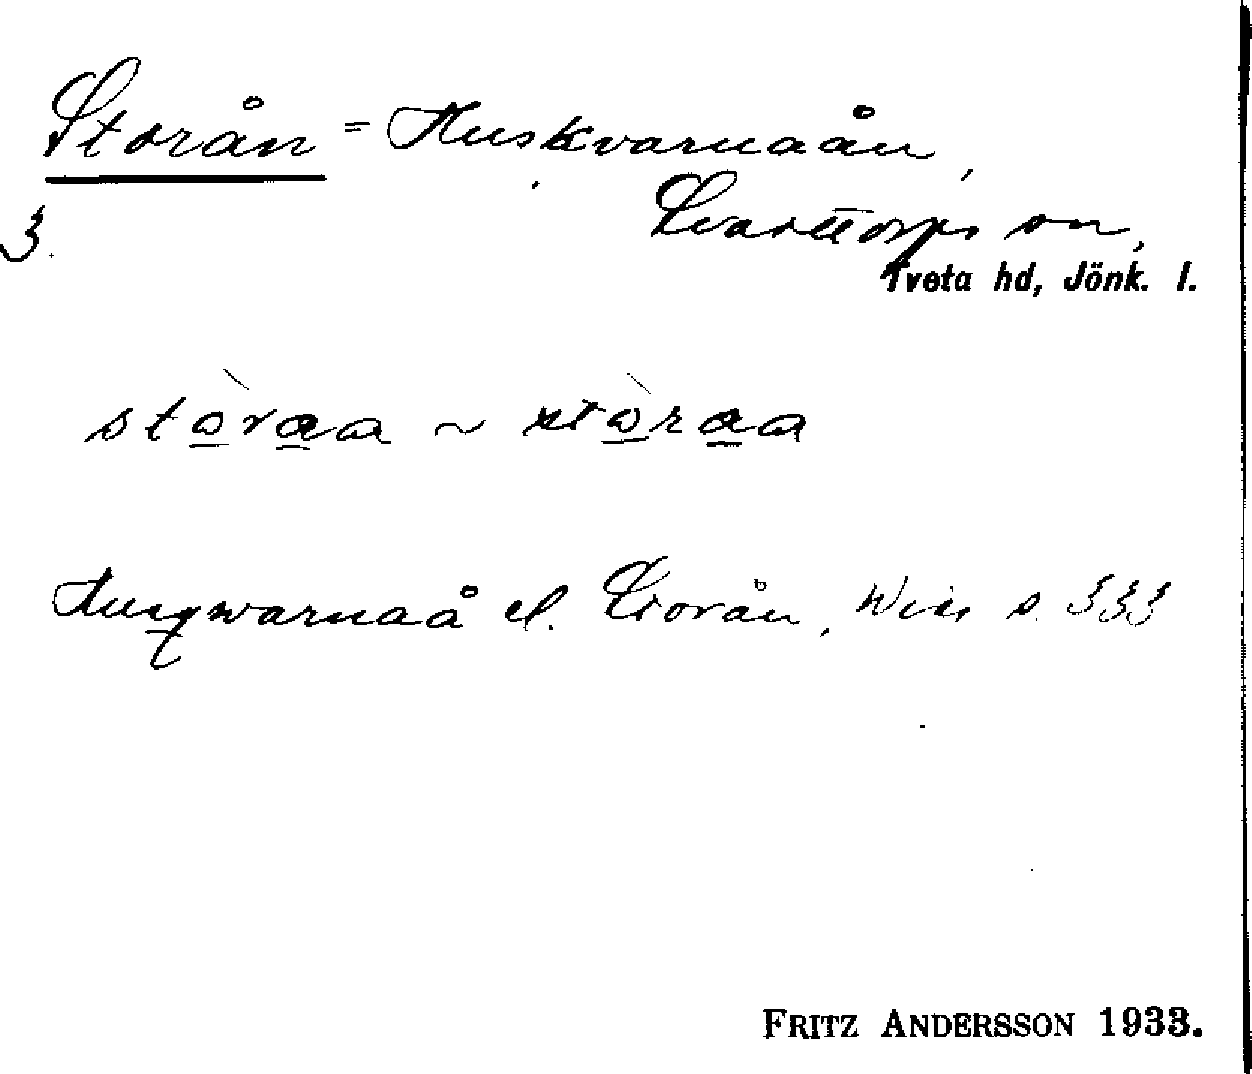 Storån = Huskvarnaån,
Svarttorps sn,
3.
Tveta hd, Jönk. l.
stòraa ~ stòraa
Husqwarnaå el. Storån, Wir. s. 333
FRITZ ANDERSSON 1933.